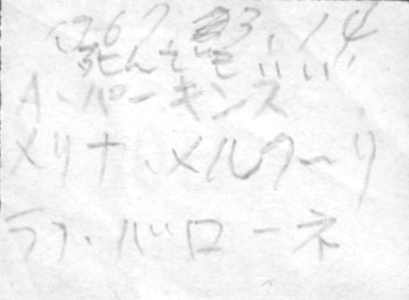 67. 3. 14
死んでもいい
A・パーキンス
メリナ・メルクーリ
ラフ・バローネ